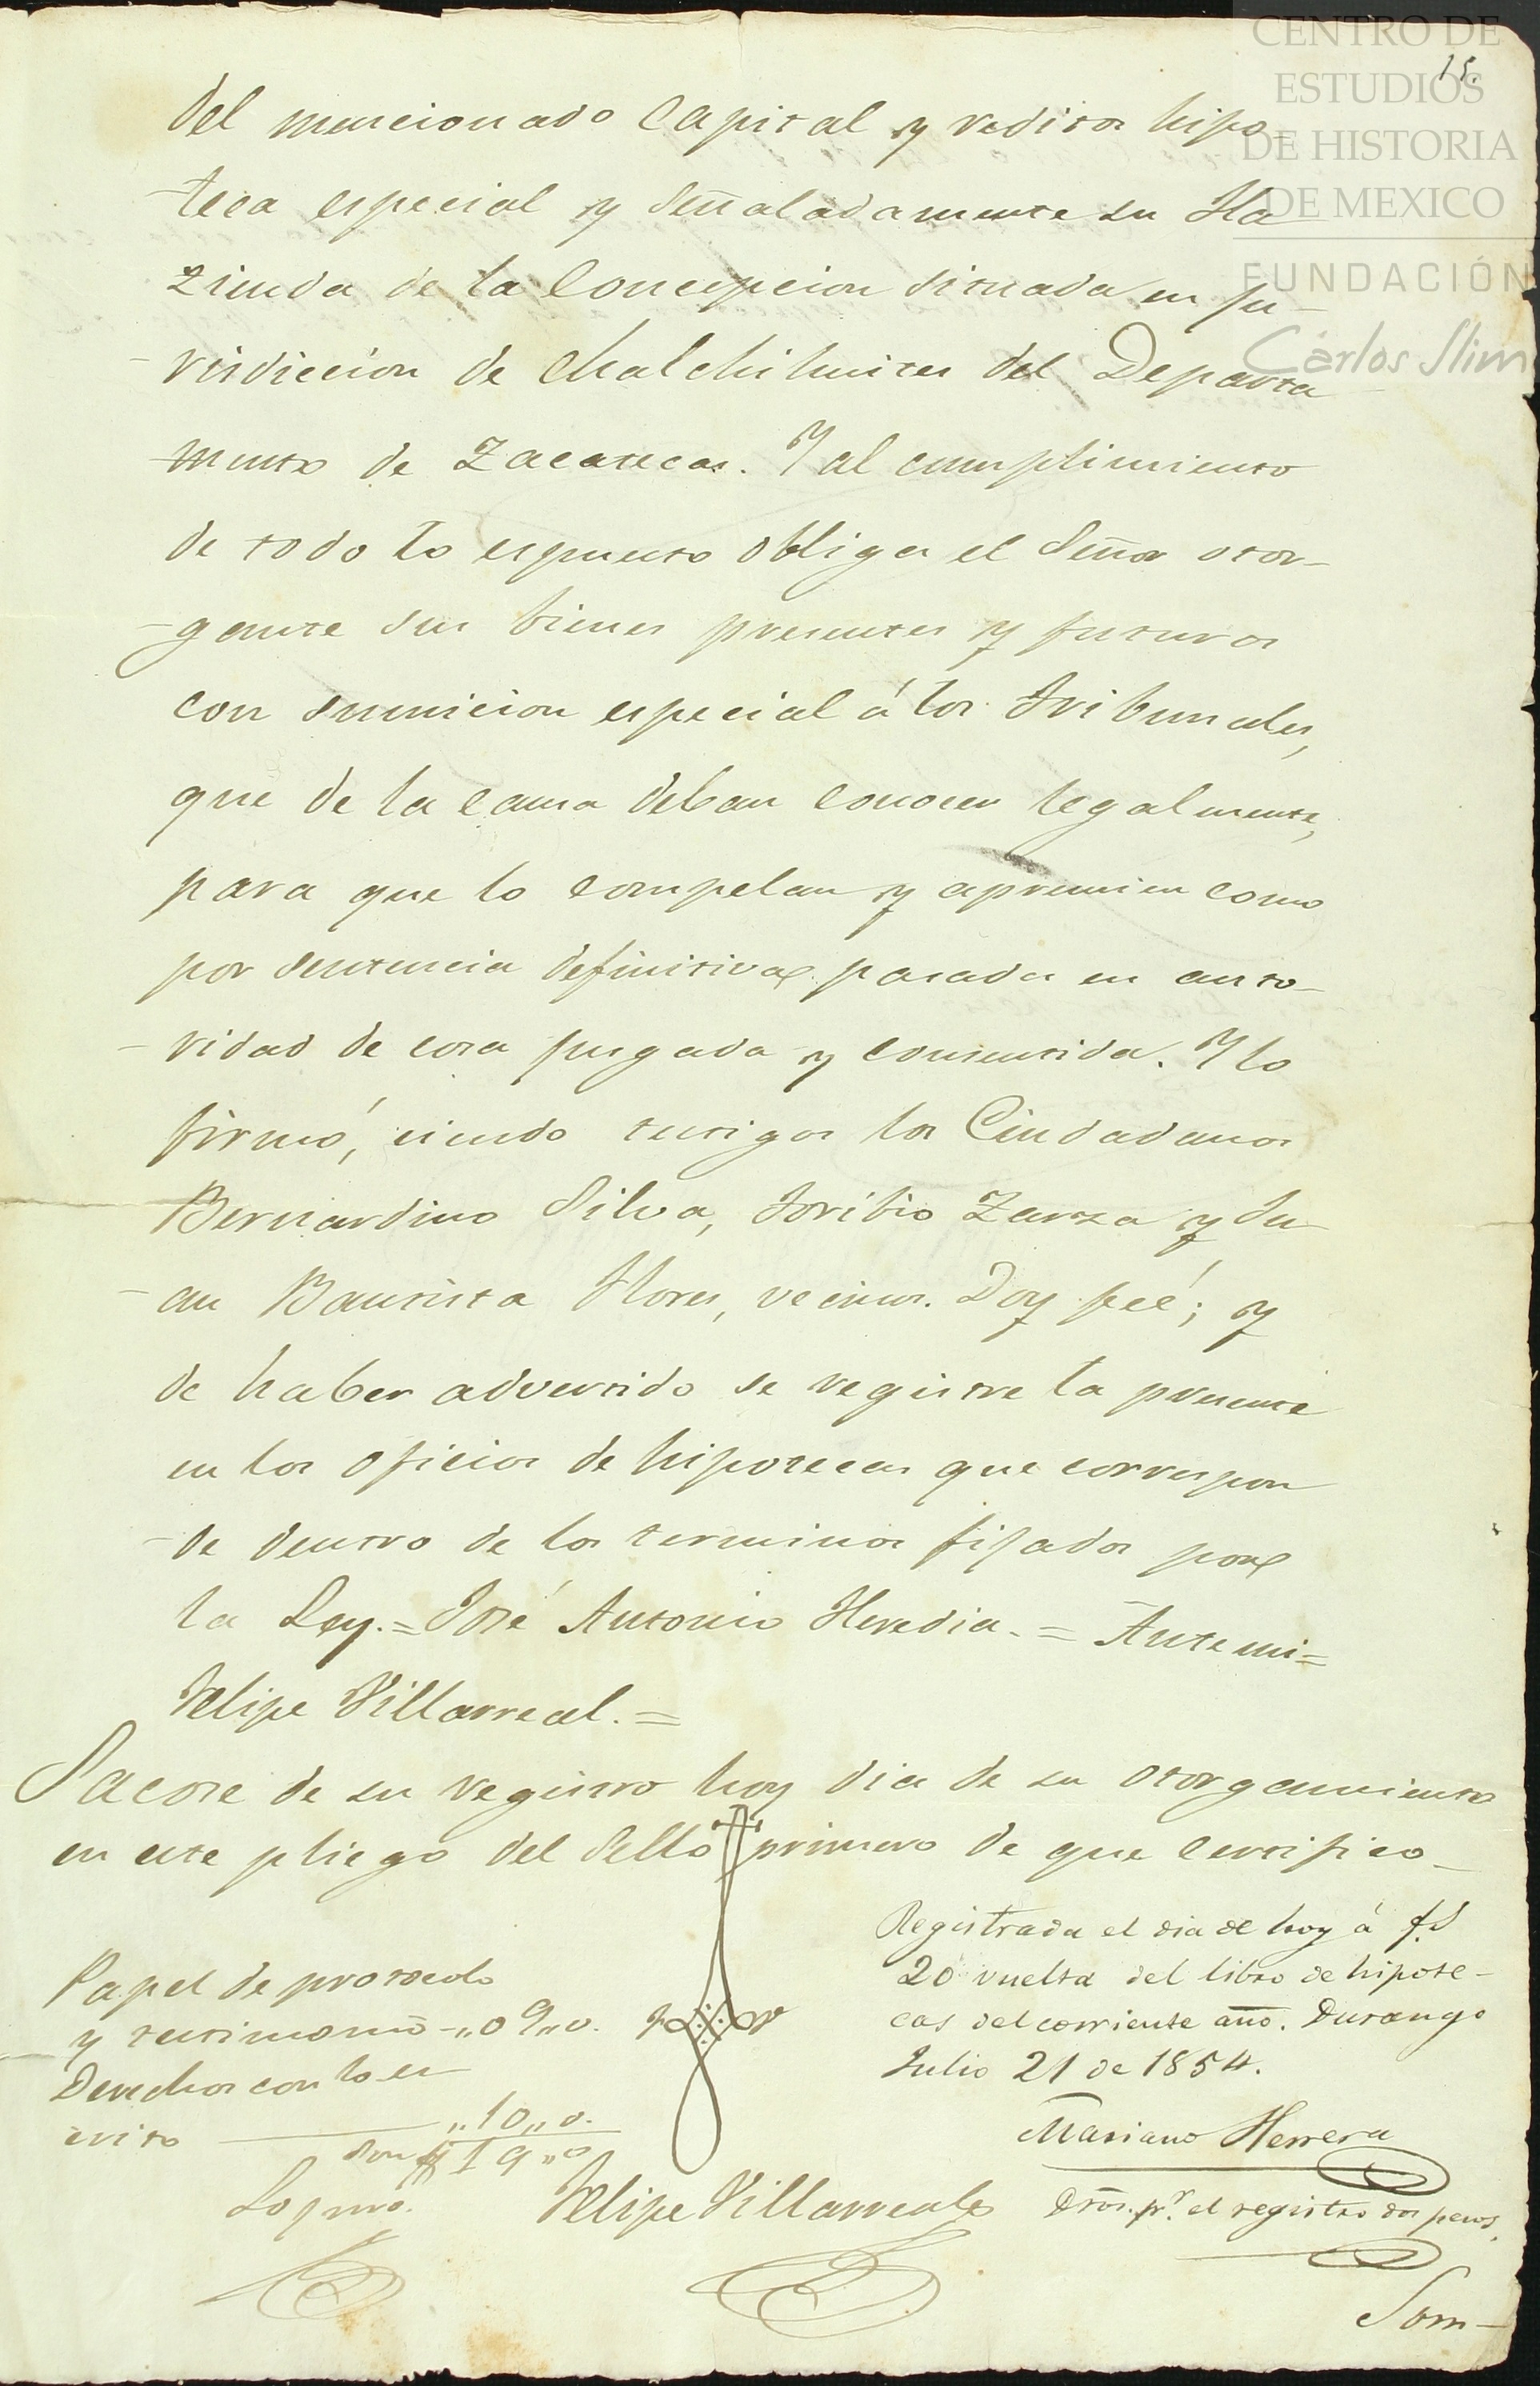 CENTRO DE
ESTUDIOS
DE HISTORIA
DE MEXICO
FUNDACIÓN
Carlos Slim
15.
del mencionado capital y reditos hipo-
-teca especial y señaladamente su Ha
zienda de la Concepcion situada en ju-
-risdiccion de Chalchihuites del Departa-
-mento de Zacatecas. Y al cumplimiento
de todo lo espuesto obliga el Señor otor-
-gante sus bienes presentes y futuros
con sumicion especial á los Tribunales,
que de la causa deban conocer legalmente,
para que lo compelan y apremien como
por sentencia definitiva pasada en auto-
-ridad de cosa jusgada y consentida. Y lo
firmó, siendo testigos los Ciudadanos
Bernardino Silva, Toribio Zarza y Ju-
-an Bautista Flores, vecinos. Doy feé; y
de haber advertido se registre la presente
en los oficios de hipotecas que correspon
-de dentro de los terminos fijados por
la Ley.=José Antonio Heredia.= Ante mi=
Felipe Villarreal.=
Sacose de su registro hoy dia de su otorgamiento
en este pliego del Sello primero de que certifico_
Papel de protocolo
y testimonio-„09„0.
Derechos con lo es
crito „10„0.
son $19„0
Registrada el dia de hoy á fs
20 vuelta del libro de hipote-
cas del corriente año. Durango
Julio 21 de 1854.
Mariano Herrera
Felipe Villarreal
Dros. pr. el registro dos pesos.
Som-